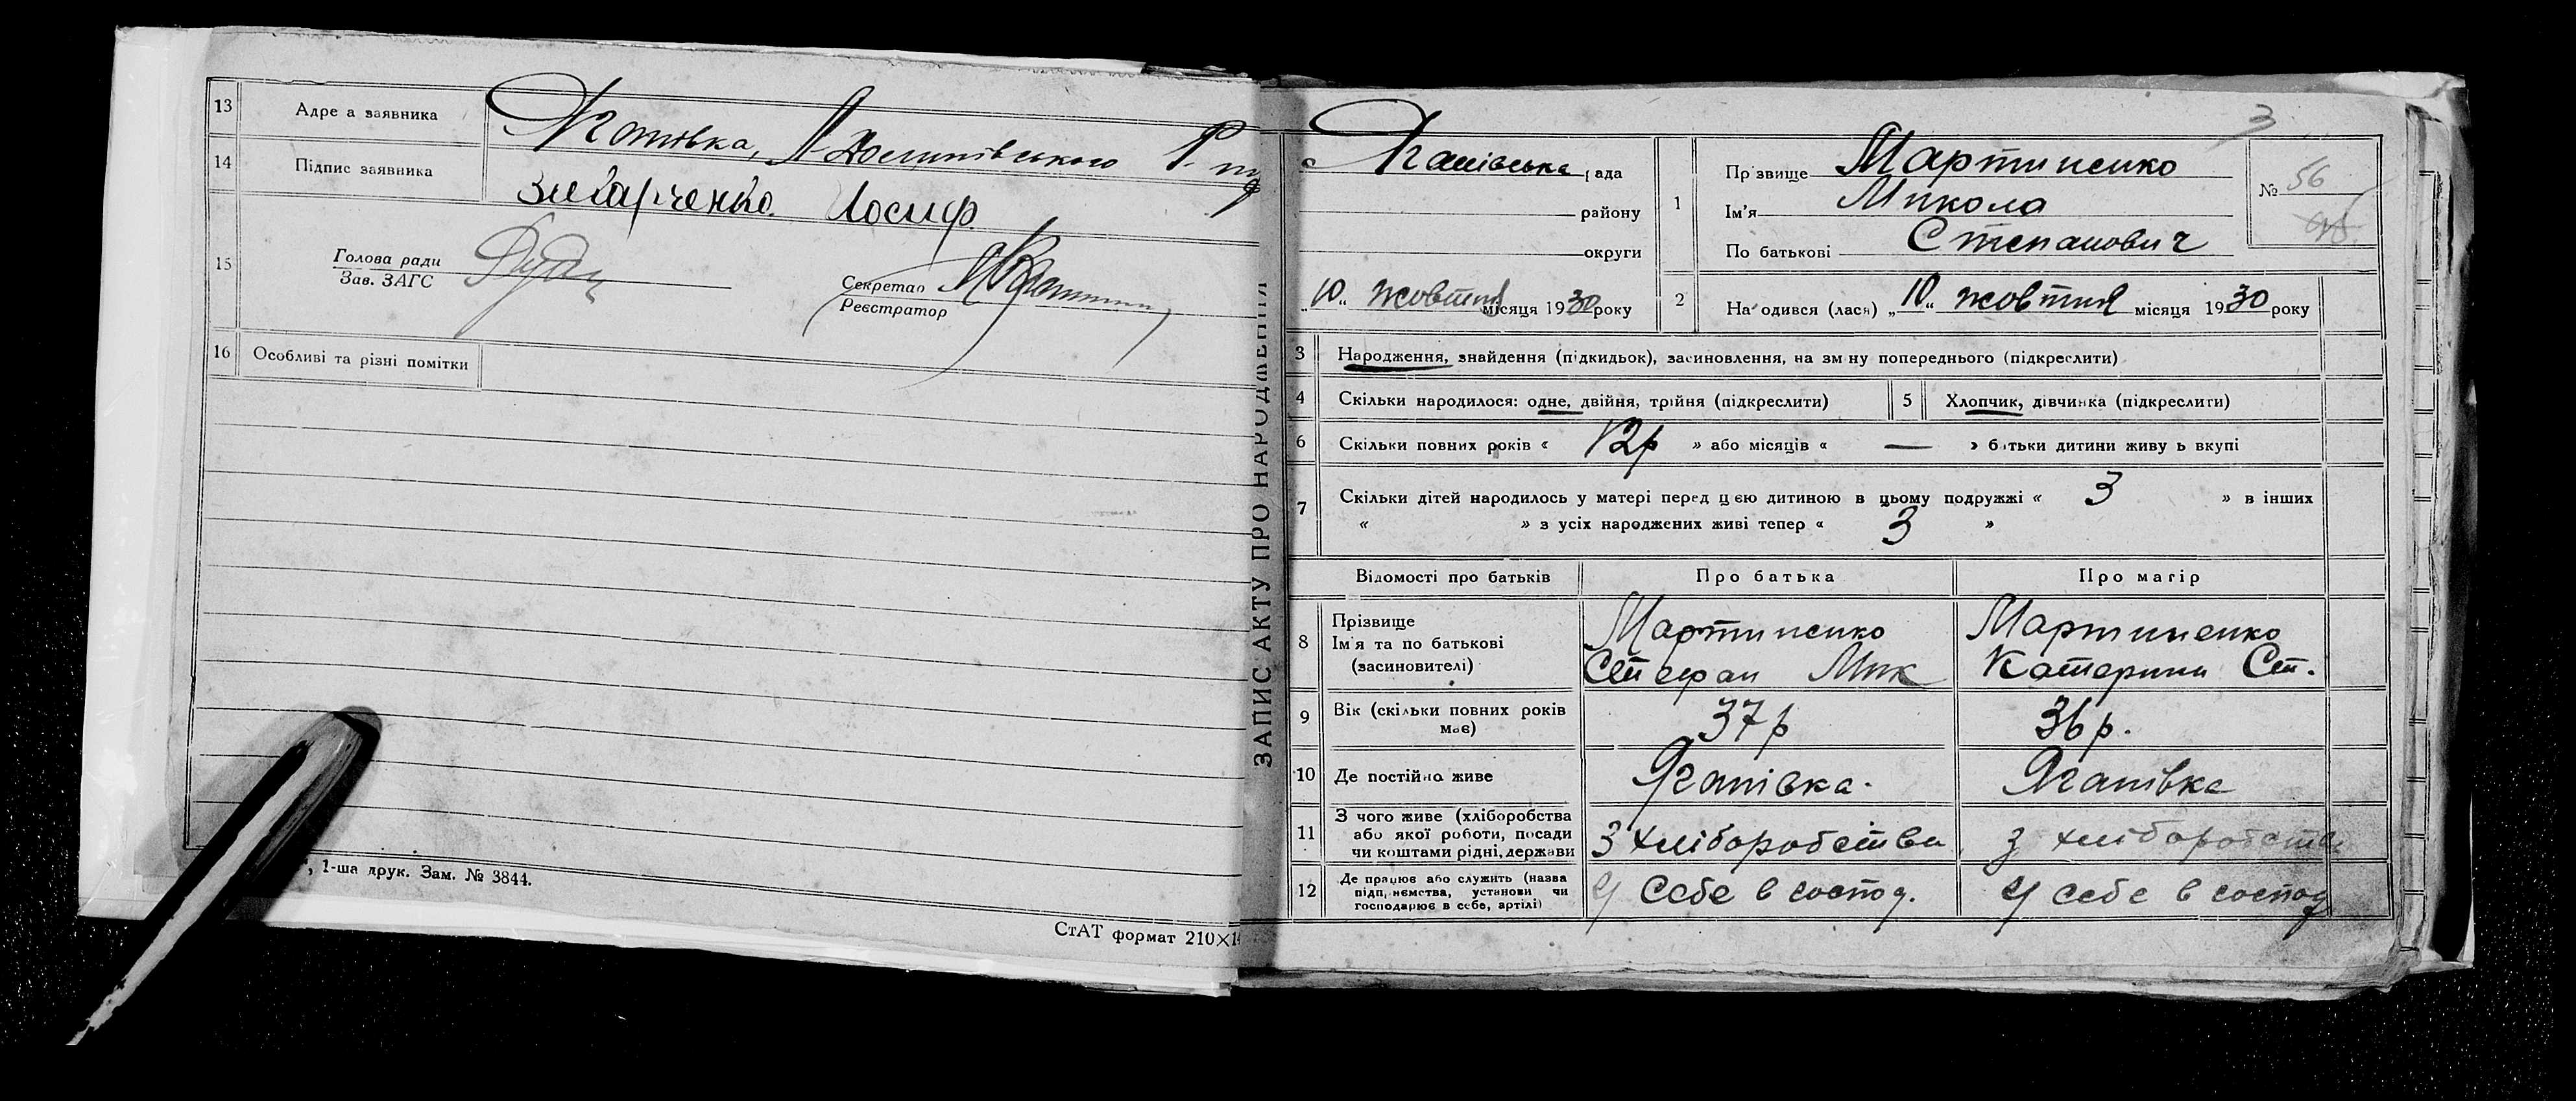 13 Адре а заявника
Яготівка,
14 Підпис заявника
Йосиф
15 Голова ради
Зав. ЗАГС
Секретар
Реєстратор
16 Особливі та різні помітки
1-ша друк. Зам. № 3844.
СтАТ формат 210×14
ЗАПИС АКТУ ПРО НАРОДЖЕННЯ
3
рада
району
округи
„10“ жовтня місяця 1930 року
1 Прізвище Мартиненко
Ім'я Микола
По батькові Степанович
№ 56
2 На одився (лася) „10“ жовтня місяця 1930 року
3 Народження, знайдення (підкидьок), засиновлення, на зм ну попереднього (підкреслити)
4 Скільки народилося: одне, двійня, трійня (підкреслити)
5 Хлопчик, дівчинка (підкреслити)
6 Скільки повних років « 12р » або місяців « — » батьки дитини живу ь вкупі
7 Скільки дітей народилось у матері перед цією дитиною в цьому подружжі « 3 » в інших
« » з усіх народжених живі тепер « 3 »
Відомості про батьків
Про батька
Про матір
8 Прізвище
Ім'я та по батькові
(засиновителі)
Мартиненко
Стефан Мик
Мартиненко
Катерина Ст.
9 Вік (скільки повних років
має)
37р
36р.
10 Де постійно живе
Яготівка.
Яготівка
11 З чого живе (хліборобства
або якої роботи, посади
чи коштами рідні, держави
З хліборобства
з хліборобства
12 Де працює або служить (назва
підприємства, установи чи
господарює в себе, артілі)
У себе в господ.
У себе в господ